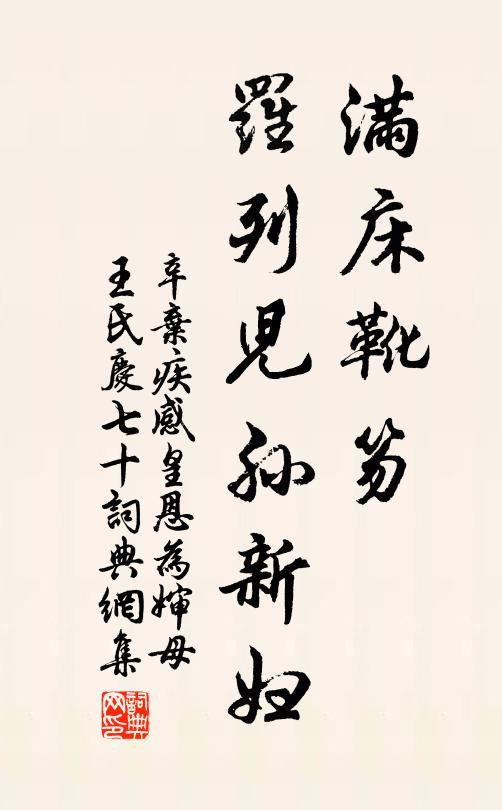 滿床靴笏
羅列兒孫新婦
辛棄疾感皇恩為婶母
王氏慶七十詞典網集
詞典網印